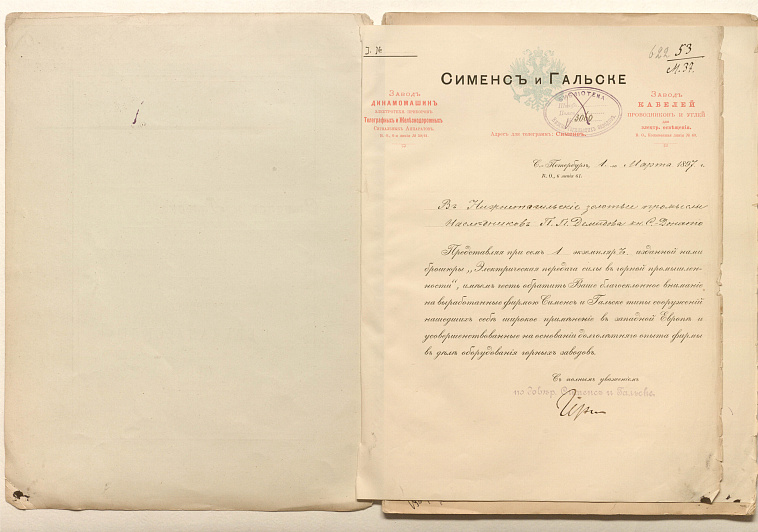 I. №
622 53
М. 37.
Сименсъ и Гальске
Заводъ
динамомашинъ
электротехн. приборовъ
Телеграфныхъ и Желѣзнодорожныхъ
Сигнальныхъ Аппаратовъ,
Заводъ
КАБЕЛЕЙ
проводниковъ и углей
для
электр. освѣщенія.
БИБЛІОТЕКА
3060
Адресъ для телеграмъ: Сименсъ.
С.-Петербургъ, 1-го Марта 1897 г.
В. О., 6 линія 61.
Въ Нижнетагильскіе золотые промыслы
Наслѣдниковъ П. П. Демидова кн. С. Донато
Представляя при семъ 1 экземпляръ изданной нами
брошюры „Электрическая передача силы въ горной промышлен-
ности", имѣемъ честь обратить Ваше благосклонное вниманіе
на выработанные фирмою Сименсъ и Гальске типы сооруженій
нашедшихъ себѣ широкое примѣненіе въ западной Европѣ и
усовершенствованные на основаніи долголѣтняго опыта фирмы
въ дѣлѣ оборудованія горныхъ заводовъ.
Съ полнымъ уваженіемъ
по довѣр. Сименсъ и Гальске.